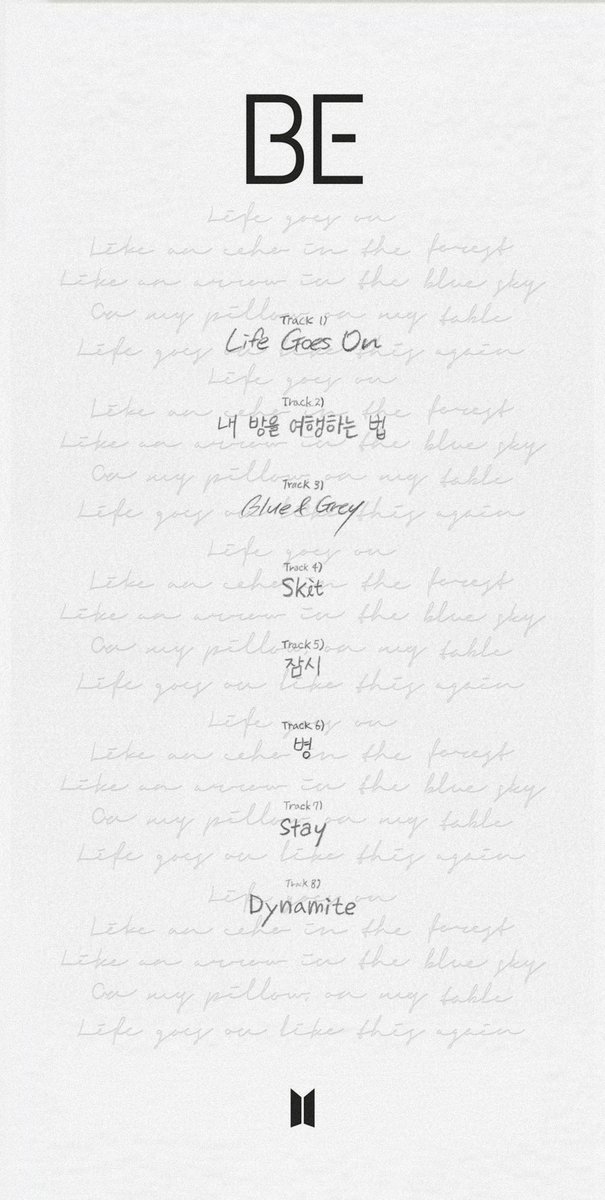 BE
Life goes on
Like an echo in the forest
Like an arrow in the blue sky
On my pillow, on my table
Track 1)
Life Goes On
Life goes on like this again
Life goes on
Track 2)
Like an echo in the forest
내 방을 여행하는 법
Like an arrow in the blue sky
On my pillow, on my table
Track 3)
Blue & Grey
Life goes on like this again
Life goes on
Track 4)
Like an echo in the forest
Skit
Like an arrow in the blue sky
On my pillow, on my table
Track 5)
잠시
Life goes on like this again
Life goes on
Track 6)
병
Like an echo in the forest
Like an arrow in the blue sky
Track 7)
On my pillow, on my table
Stay
Life goes on like this again
Track 8)
Life goes on
Dynamite
Like an echo in the forest
Like an arrow in the blue sky
On my pillow, on my table
Life goes on like this again